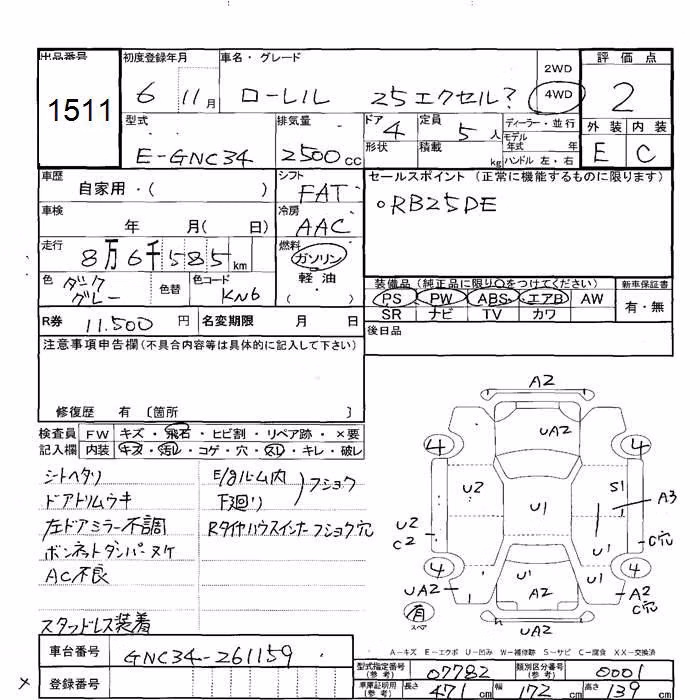 出品番号 初度登録年月 車名・グレード 2WD 評価点
1511 6 11月 ローレル 25エクセル? 4WD 2
型式 排気量 ドア 定員 ディーラー・並行 外装 内装
E-GNC34 2500cc 4 5人 モデル年式 年 E C
形状 積載 kg ハンドル 左・右
車歴 自家用・( ) シフト FAT セールスポイント (正常に機能するものに限ります)
車検 年 月( 日) 冷房 AAC ○RB25DE
走行 8万6千585km 燃料 ガソリン・軽油
色 ダークグレー 色替 色コード KN6 ( )
装備品 (純正品に限り○をつけてください) 新車保証書
PS PW ABS エアB AW 有・無
SR ナビ TV カワ
R券 11.500円 名変期限 月 日 後日品
注意事項申告欄(不具合内容等は具体的に記入して下さい)
修復歴 有 〔箇所 〕
検査員 FW キズ・飛石・ヒビ割・リペア跡・×要
記入欄 内装 キズ・汚レ・コゲ・穴・スレ・キレ・破レ
シートヘタリ
ドアトリムウキ
左ドアミラー不調
ボンネットダンパーヌケ
AC不良
スタッドレス装着
E/gルーム内
下廻リ
フショク
Rタイヤハウスインナーフショク穴
A2
UA2
4 4
U2 U1 S1 A3
U2
C2 U1 C穴
4 U1 U1 4
UA2 A2 A2
C穴
有
スペア UA2
A-キズ E-エクボ U-凹み W-補修跡 S-サビ C-腐食 XX-交換済
車台番号 GNC34-261159
登録番号
型式指定番号(参考) 07782 類別区分番号(参考) 0001
車庫証明用(参考) 長さ 471cm 幅 172cm 高さ 139cm
×